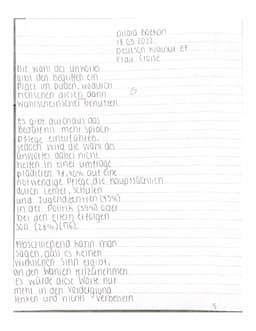 19.05.2022
Deutsch Klausur EF
Frau
Die Wahl des Unwortes
gibt den Begriffen ein
Platz im Duden, wodurch
Menschen diesen dann
wahrscheinlicher benutzen.
Es gibt durchaus das
Bedürfnis mehr Sprach
Pflege einzuführen,
jedoch wird die Wahl des
Unwortes dabei nicht
helfen. In einer Umfrage
plädieren 78,40% auf eine
notwendige Pflege, die hauptsächlich
durch Lehrer, Schulen
und
in der Politik (39%) oder
bei den Eltern erfolgen
soll
Abschließend kann man
sagen, dass es keinen
wirklichen Sinn ergibt,
an den Wahlen teilzunehmen.
Es würde diese Worte nur
mehr in den Vordergrund
lenken und nichts verbessern